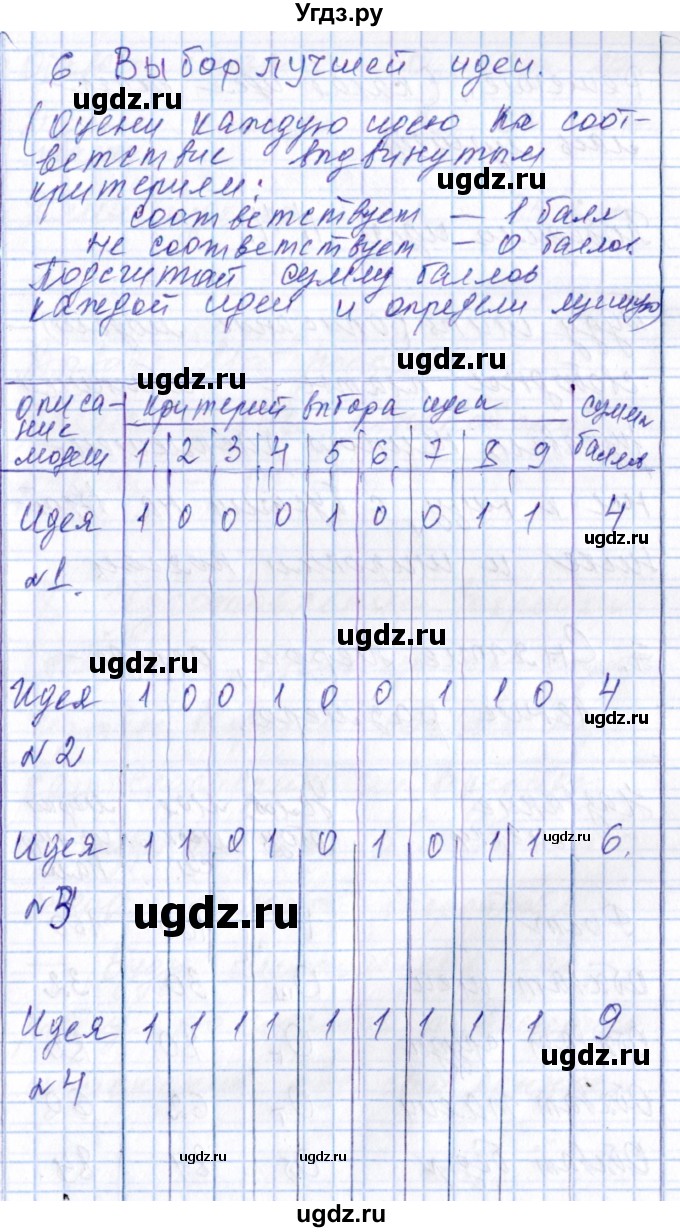 Угдз.ру
6. Выбор лучшей идеи.
ugdz.ru
(Оцени каждую идею на соот-
ветствие выдвинутым
ugdz.ru
критериям:
соответствует — 1 балл
не соответствует — 0 баллов
Подсчитай сумму баллов
каждой идеи и определи лучшую)
ugdz.ru
описа- Критерий выбора идеи сумма
ние
модели 1 2 3 4 5 6 7 8 9 баллов
Идея 1 0 0 0 1 0 0 1 1 4
ugdz.ru
№1.
ugdz.ru
ugdz.ru
Идея 1 0 0 1 0 0 1 1 0 4
ugdz.ru
№2
ugdz.ru
Идея 1 1 0 1 0 1 0 1 1 6.
№3
ugdz.ru
Идея 1 1 1 1 1 1 1 1 1 9
ugdz.ru
№4
ugdz.ru ugdz.ru
ugdz.ru